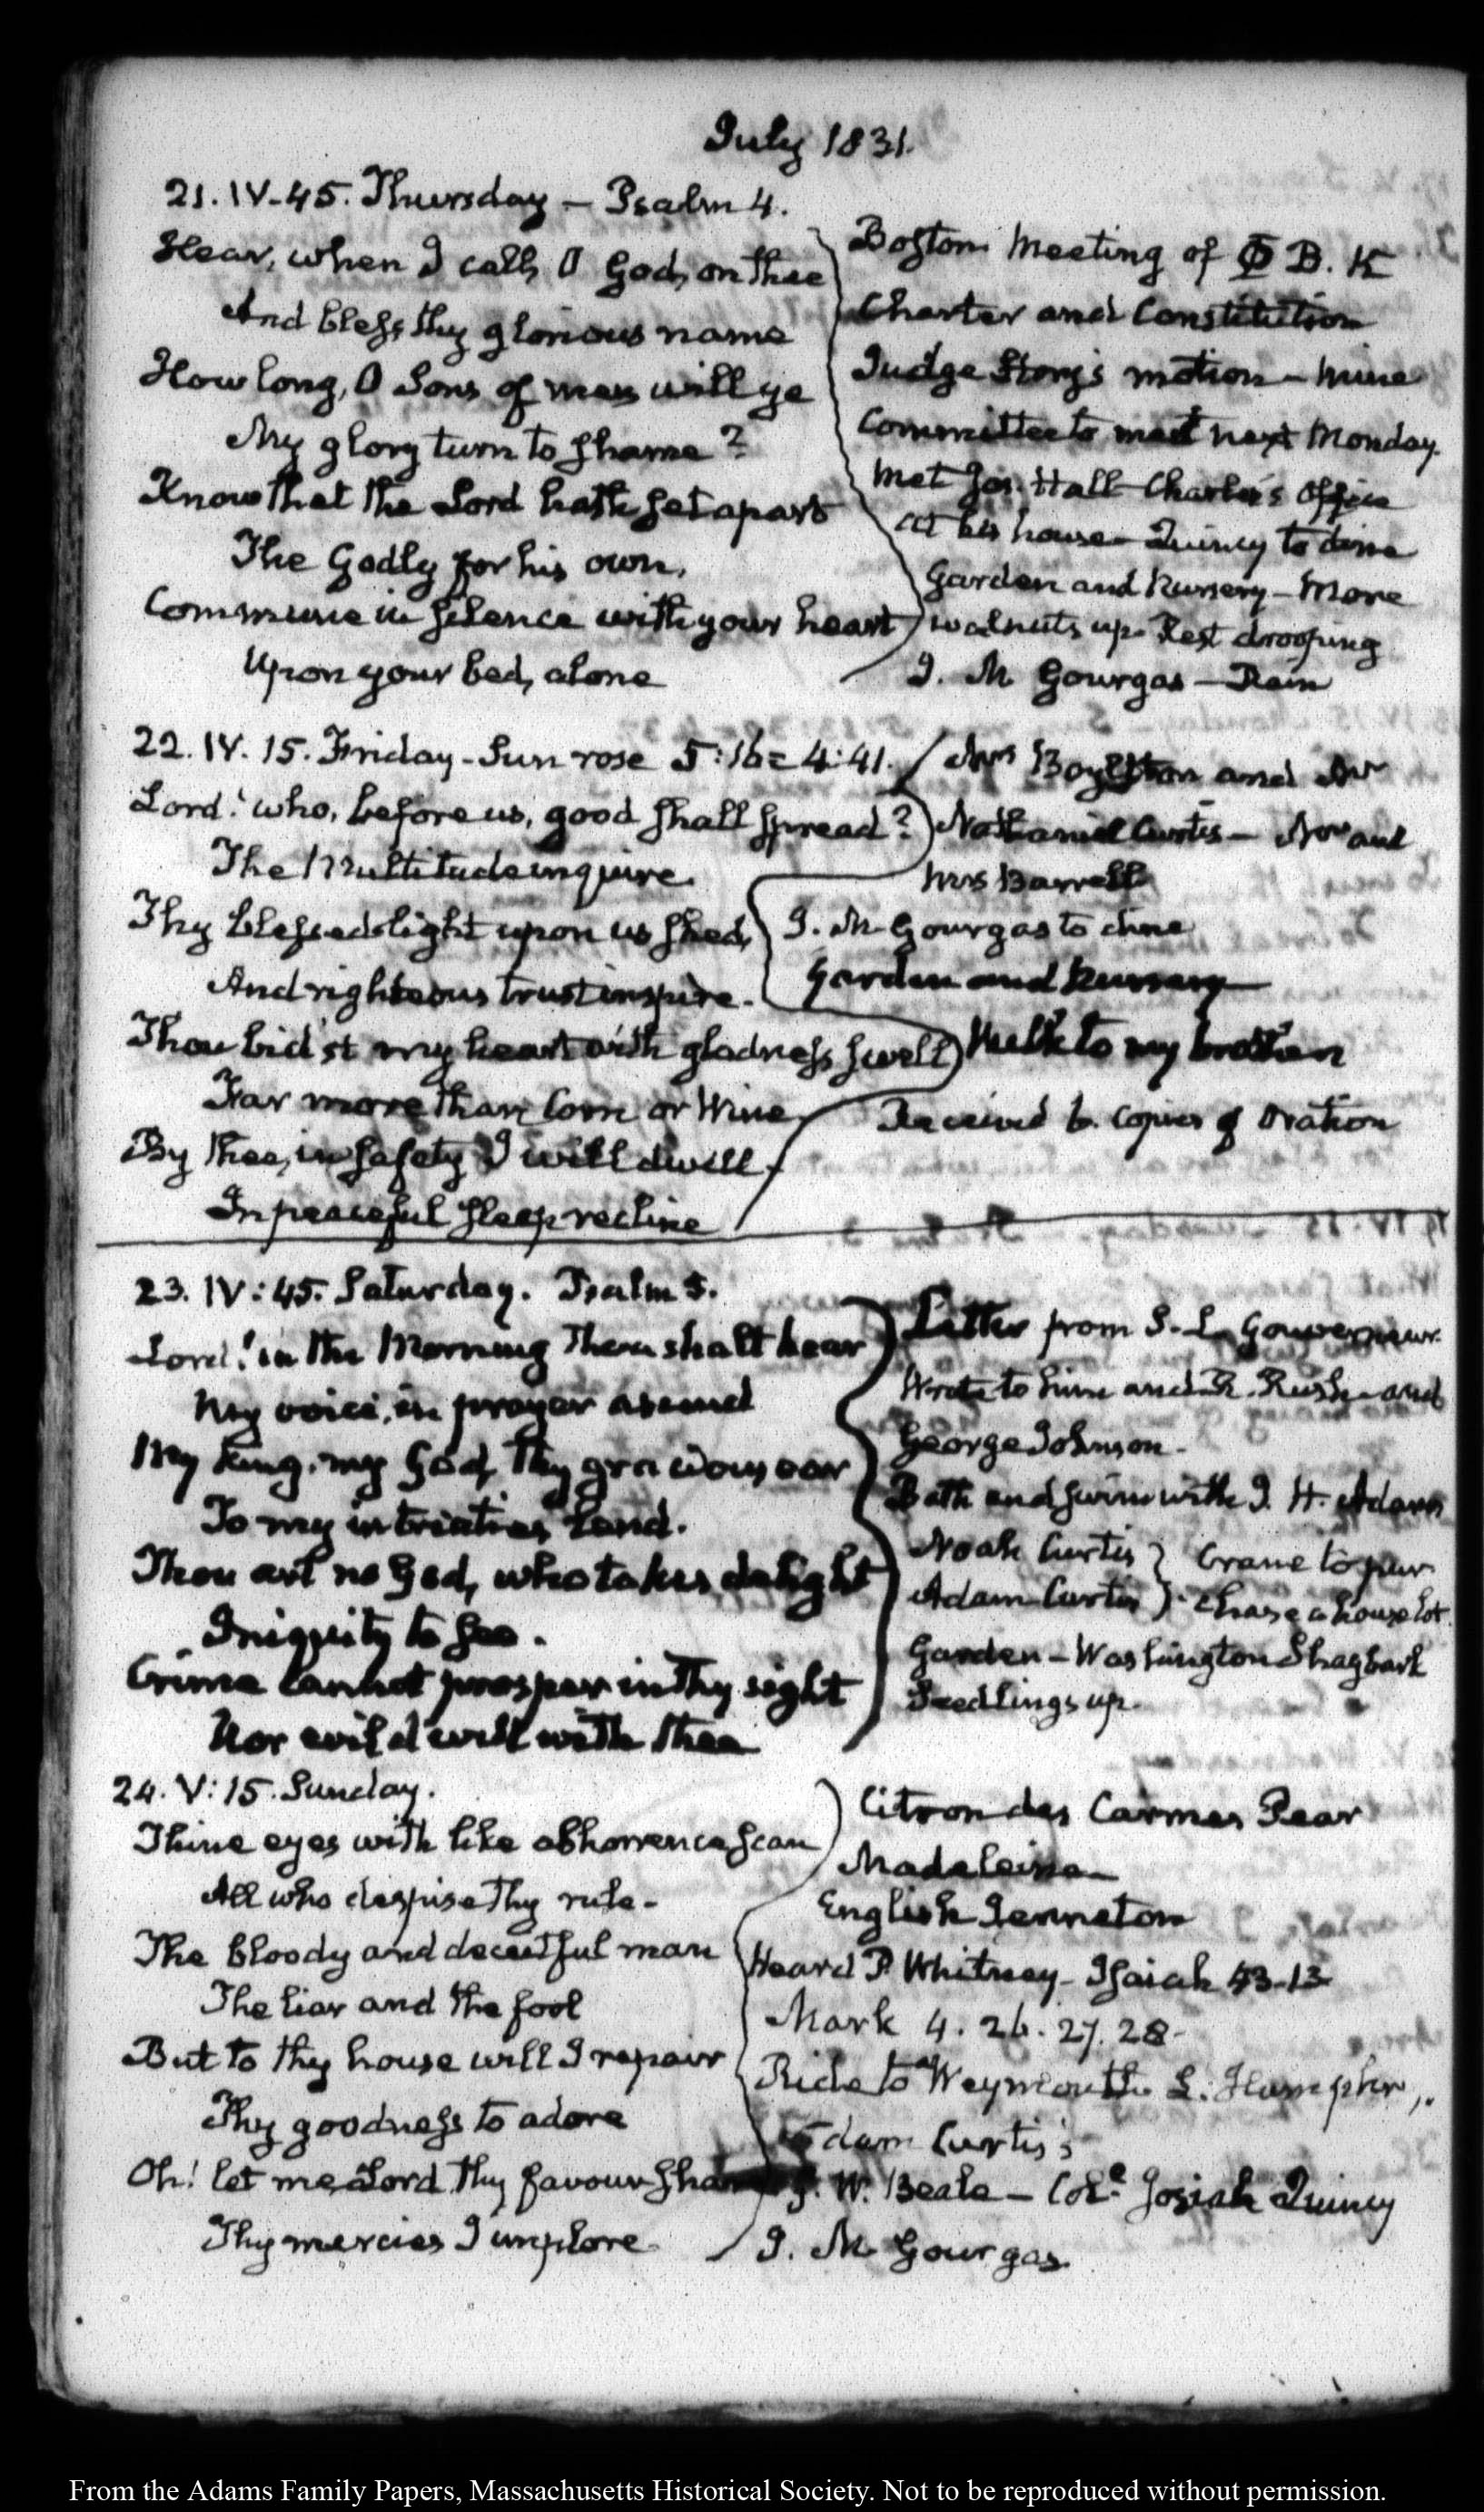 July 1831.
21. IV-45. Thursday - Psalm 4.
Hear, when I call, O God, on thee
And bless thy glorious name
How long, O Sons of men will ye
My glory turn to shame?
Know that the Lord hath set apart
The Godly for his own,
Commune in silence with your heart
Upon your bed, alone
Boston Meeting of Φ B. K
Charter and Constitution
Judge Story's motion - mine
Committee to meet next Monday.
Met Jos. Hall Charles's office
at his house - Quincy to dine
Garden and Nursery - More
walnuts up. Rest drooping
I. M Gourgas - Rain
22. IV. 15. Friday - Sun rose 5:16 = 4:41.
Lord! who, before us, good shall spread?
The Multitude inquire.
Thy blessed light upon us shed,
And righteous trust inspire.
Thou bid'st my heart with gladness swell
Far more than Corn or Wine
By thee, in safety I will dwell,
In peaceful sleep recline
Mrs Boylston and Mr
Nathaniel Curtis - Mr and
Mrs Barrell
I. M Gourgas to dine
Garden and Nursery
Walk to my brother
Received 6. Copies of Oration
23. IV: 45. Saturday. Psalm 5.
Lord! in the Morning Thou shalt hear
My voice, in prayer ascend
My King, my God, thy gracious ear
To my intreaties lend.
Thou art no God, who takes delight
Iniquity to see.
Crime cannot prosper in thy sight
Nor evil dwell with thee
Letter from S. L. Gouverneur.
Wrote to him and R. Rush and
George Johnson.
Bath and swim with I. H. Adams
Noah Curtis } Crane to pur
Adam Curtis } chase a house lot.
Garden - Washington Shagbark
Seedlings up.
24. V: 15. Sunday.
Thine eyes with like abhorrence scan
All who despise thy rule -
The bloody and deceitful man
The liar and the fool
But to thy house will I repair
Thy goodness to adore
Oh! let me, Lord, thy favour share
Thy mercies I implore.
Citron des Carmes Pear
Madeleine
English Jenneton
Heard P. Whitney - Isaiah 43-13
Mark 4. 26. 27. 28.
Ride to Weymouth
Adam Curtis's
G. W. Beale - Col. Josiah Quincy
I. M Gourgas.
From the Adams Family Papers, Massachusetts Historical Society. Not to be reproduced without permission.